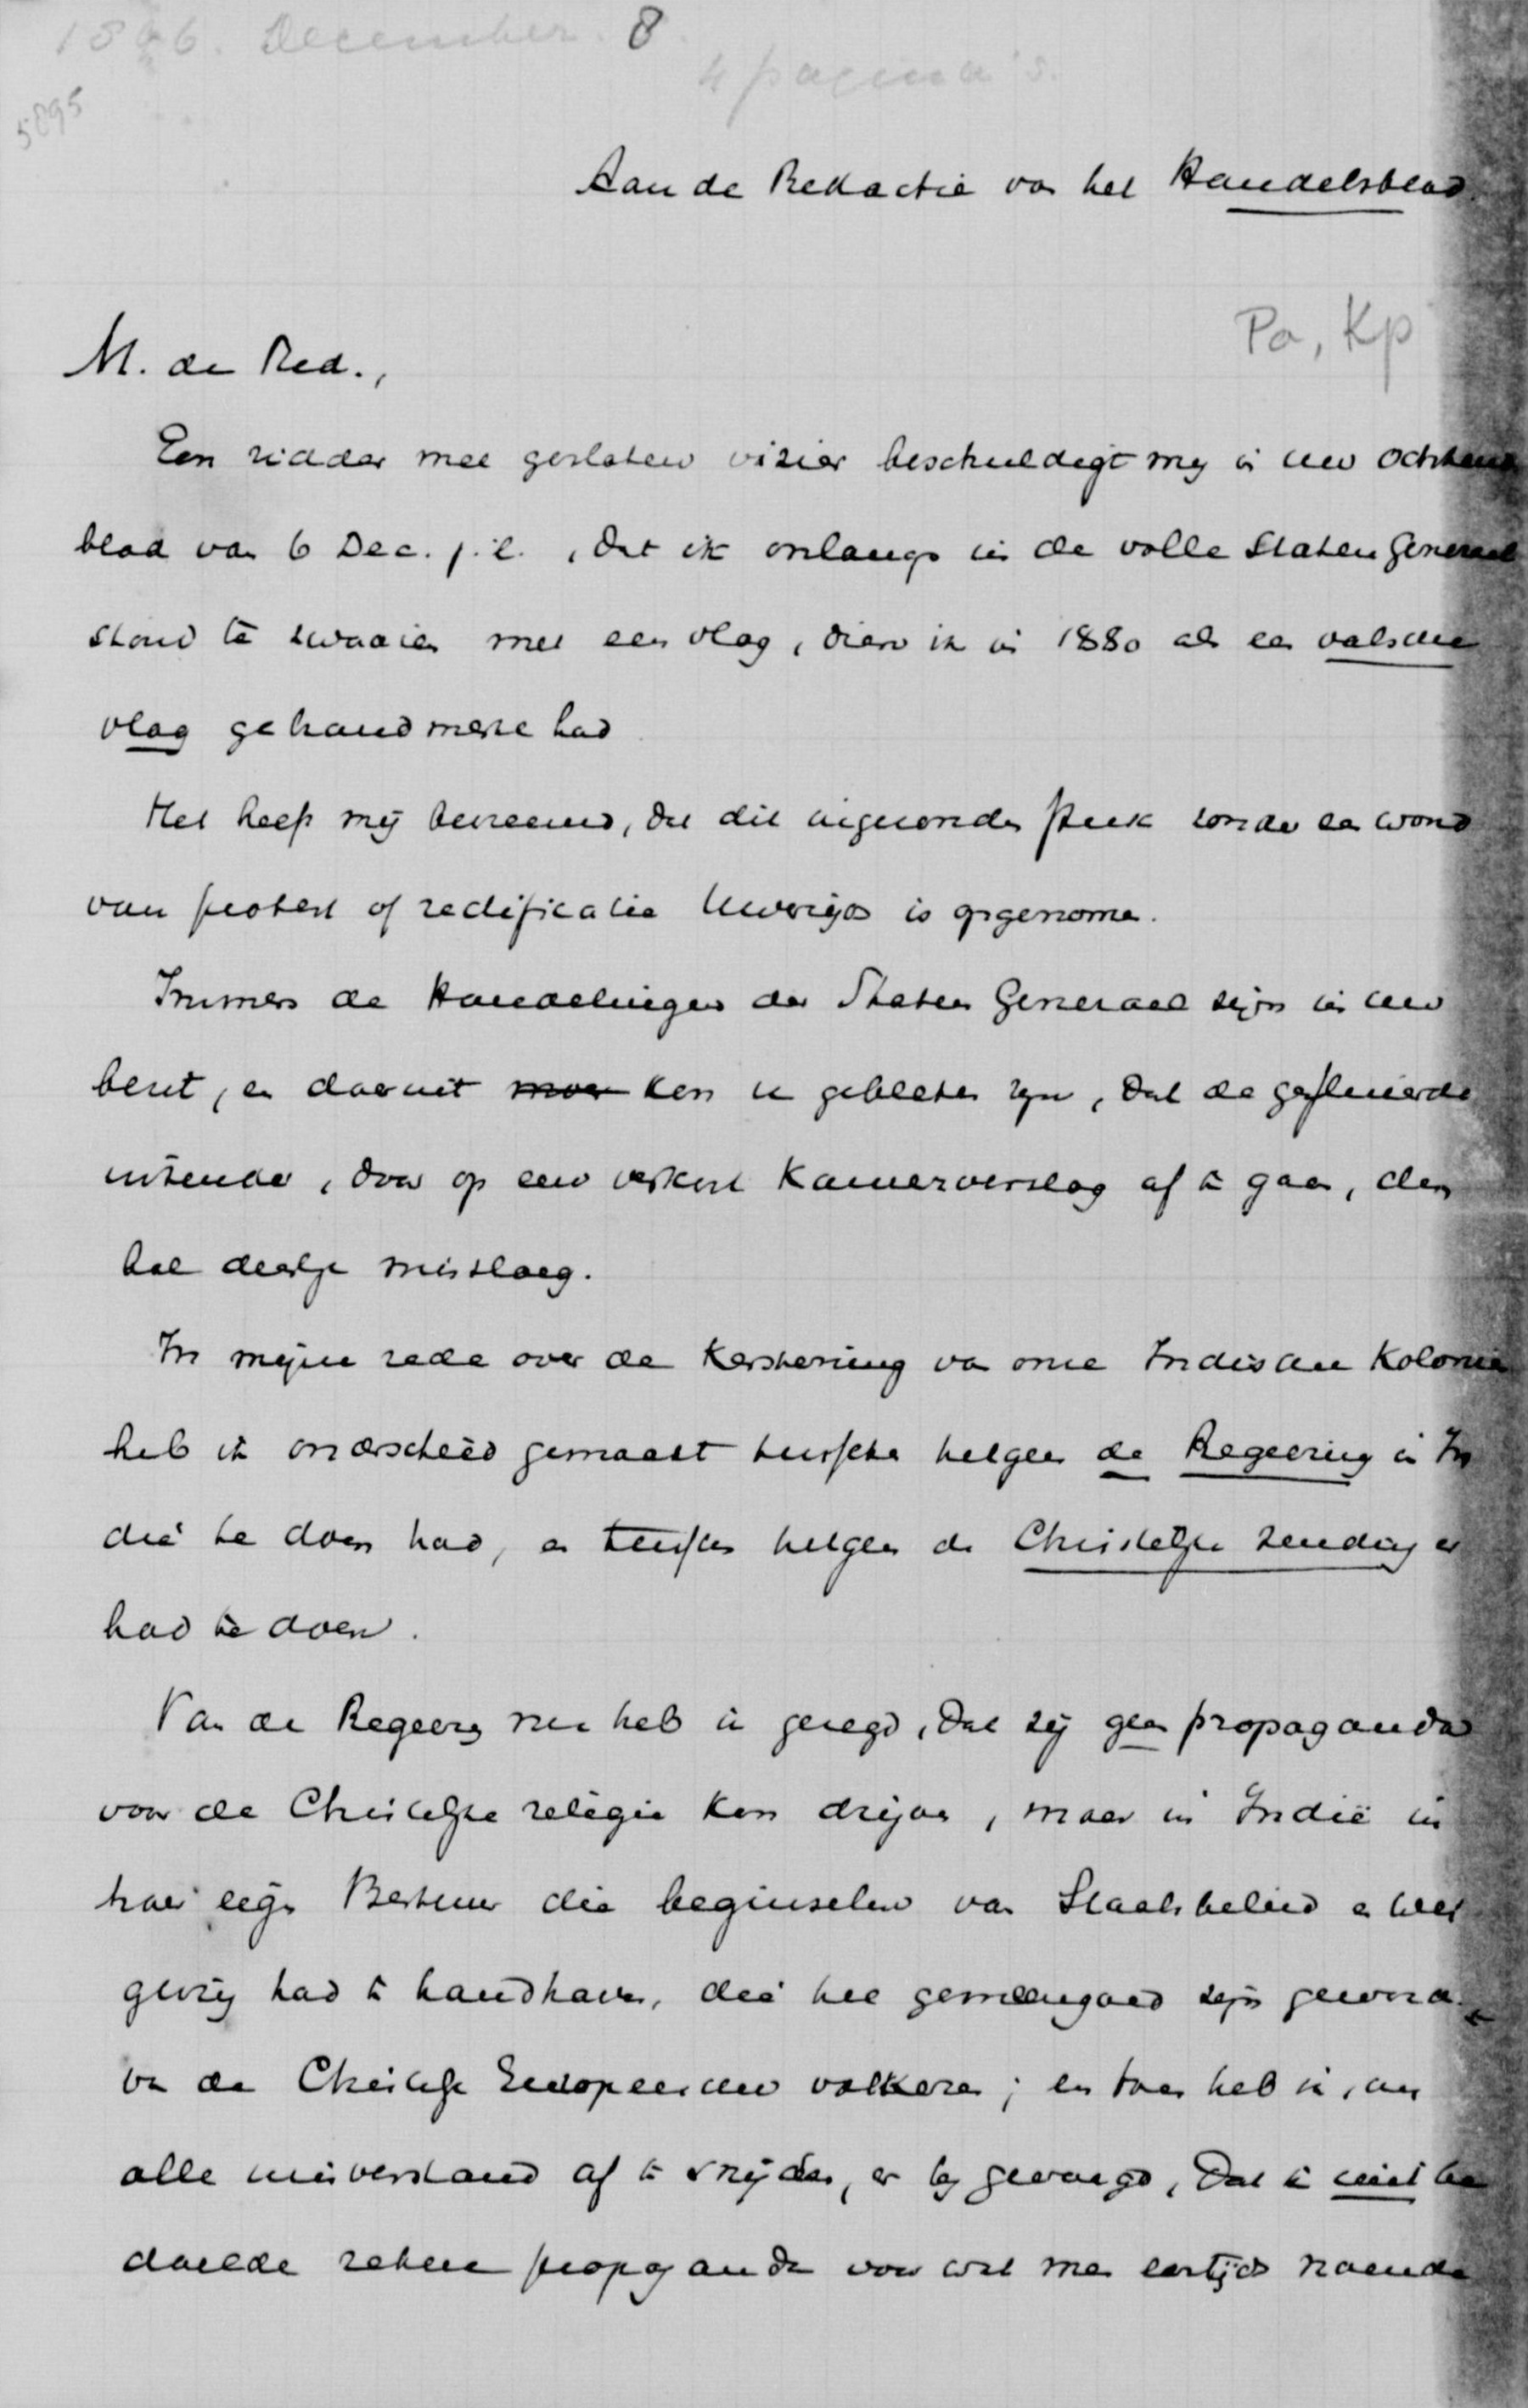 1896. December. 8.
4 pagina's.
5895
Aan de Redactie van het Handelsblad.
Pa, Kp
M. de Red.,
Een ridder met gesloten vizier beschuldigt mij in uw Ochtend
blad van 6 Dec. j.l., dat ik onlangs in de volle Staten Generaal
stond te zwaaien met een vlag, dien ik in 1880 als een valsche
vlag gebrandmerkt had
Het heeft mij bevreemd, dat dit ingezonden stuk zonder een woord
van protest of rectificatie Uwerzijds is opgenomen.
Immers de Handelingen der Staten Generaal zijn in uw
bezit, en daaruit kon u gebleken zijn, dat de
inzender, door op een verkort Kamerverslag af te gaan, den
bal deerlijk missloeg.
In mijne rede over de Kerstening van onze Indische Kolonie
heb ik onderscheid gemaakt tusschen hetgeen de Regeering in In
dië te doen had, en tusschen hetgeen de Christelijke zending er
had te doen.
Van de Regeering nu heb ik gezegd, dat zij geen propaganda
voor de Christelijke religie kon drijven, maar in Indië in
haar eigen Bestuur die beginselen van Staatsbeleid en wet
geving had te handhaven, die het gemeengoed zijn geworden
van de Christelijke Europeesche volkeren; en toen heb ik, om
alle misverstand af te snijden, er bij gevoegd, dat ik niet be
doelde zekere propaganda voor wat men eertijds noemde